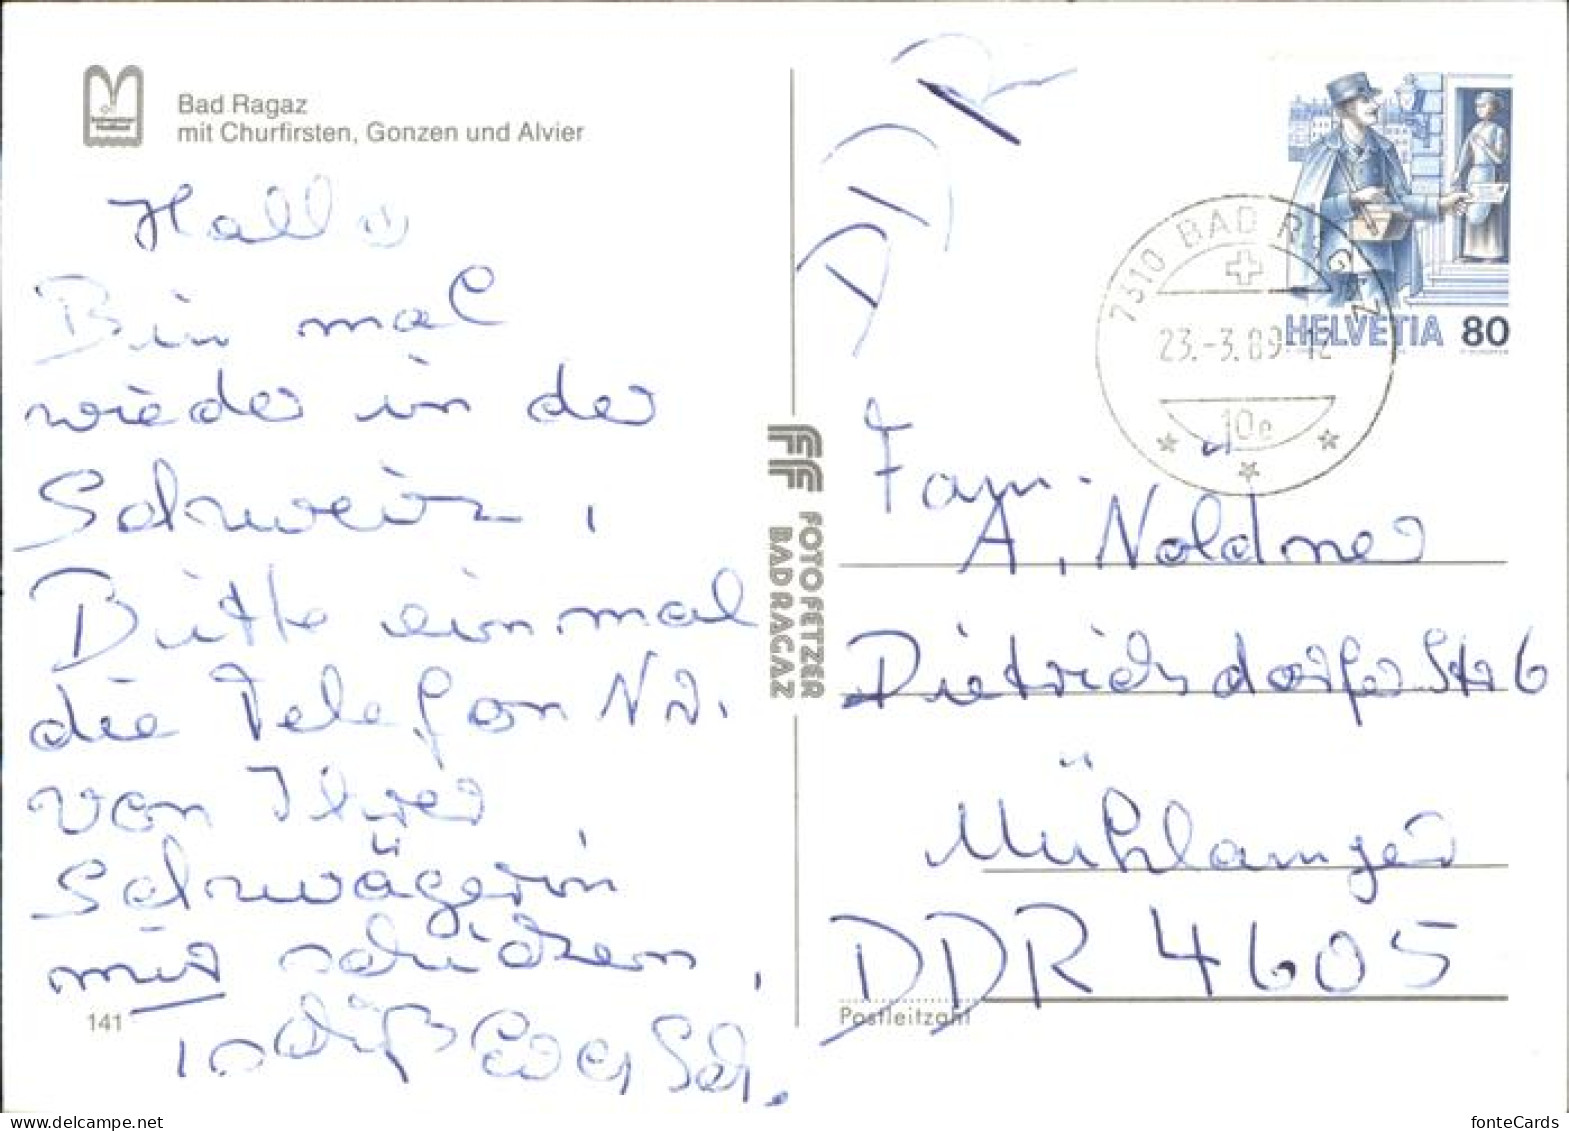 Bad Ragaz
mit Churfirsten, Gonzen und Alvier
Hallo
Bin mal
wieder in der
Schweiz,
Bitte einmal
die Telefon Nr.
von Ihrer
Schwägerin
mir schicken,
141
FOTO FETZER
BAD RAGAZ
DDR
HELVETIA 80
7310 BAD RAGAZ
23.-3.89-12
10e
Fam.
A. Noldner
Dietrichsdorfer Str 6
Mühlanger
DDR 4605
Postleitzahl
fonteCards